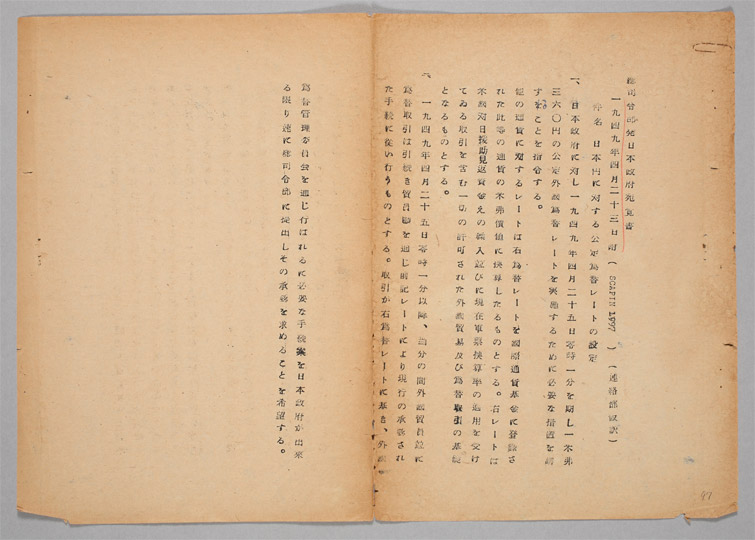 総司令部発日本政府宛覚書
一九四九年四月二十三日附(SCAPIN 1997)(連絡部仮訳)
件名 日本円に対する公定為替レートの設定
一、日本政府に対し一九四九年四月二十五日零時一分を期し一米弗
三六〇円の公定外国為替レートを実施するために必要な措置を講
ずることを指令する。
他の通貨に対するレートは右為替レートを国際通貨基金に登録さ
れた此等の通貨の米弗価値に換算したるものとする。右レートは
米国対日援助見返資金えの繰入並びに現在軍票換算率の適用を受け
てゐる取引を含む一切の許可された外国貿易及び為替取引の基礎
となるものとする。
二、一九四九年四月二十五日零時一分以降、当分の間外国貿易並に
為替取引は引続き貿易庁を通じ前記レートにより現行の承認され
た手続に従い行うものとする。取引が右為替レートに基き、外国
為替管理委員会を通じ行はれるに必要な手続案を日本政府が出来
る限り速に総司令部に提出しその承認を求めることを希望する。
87